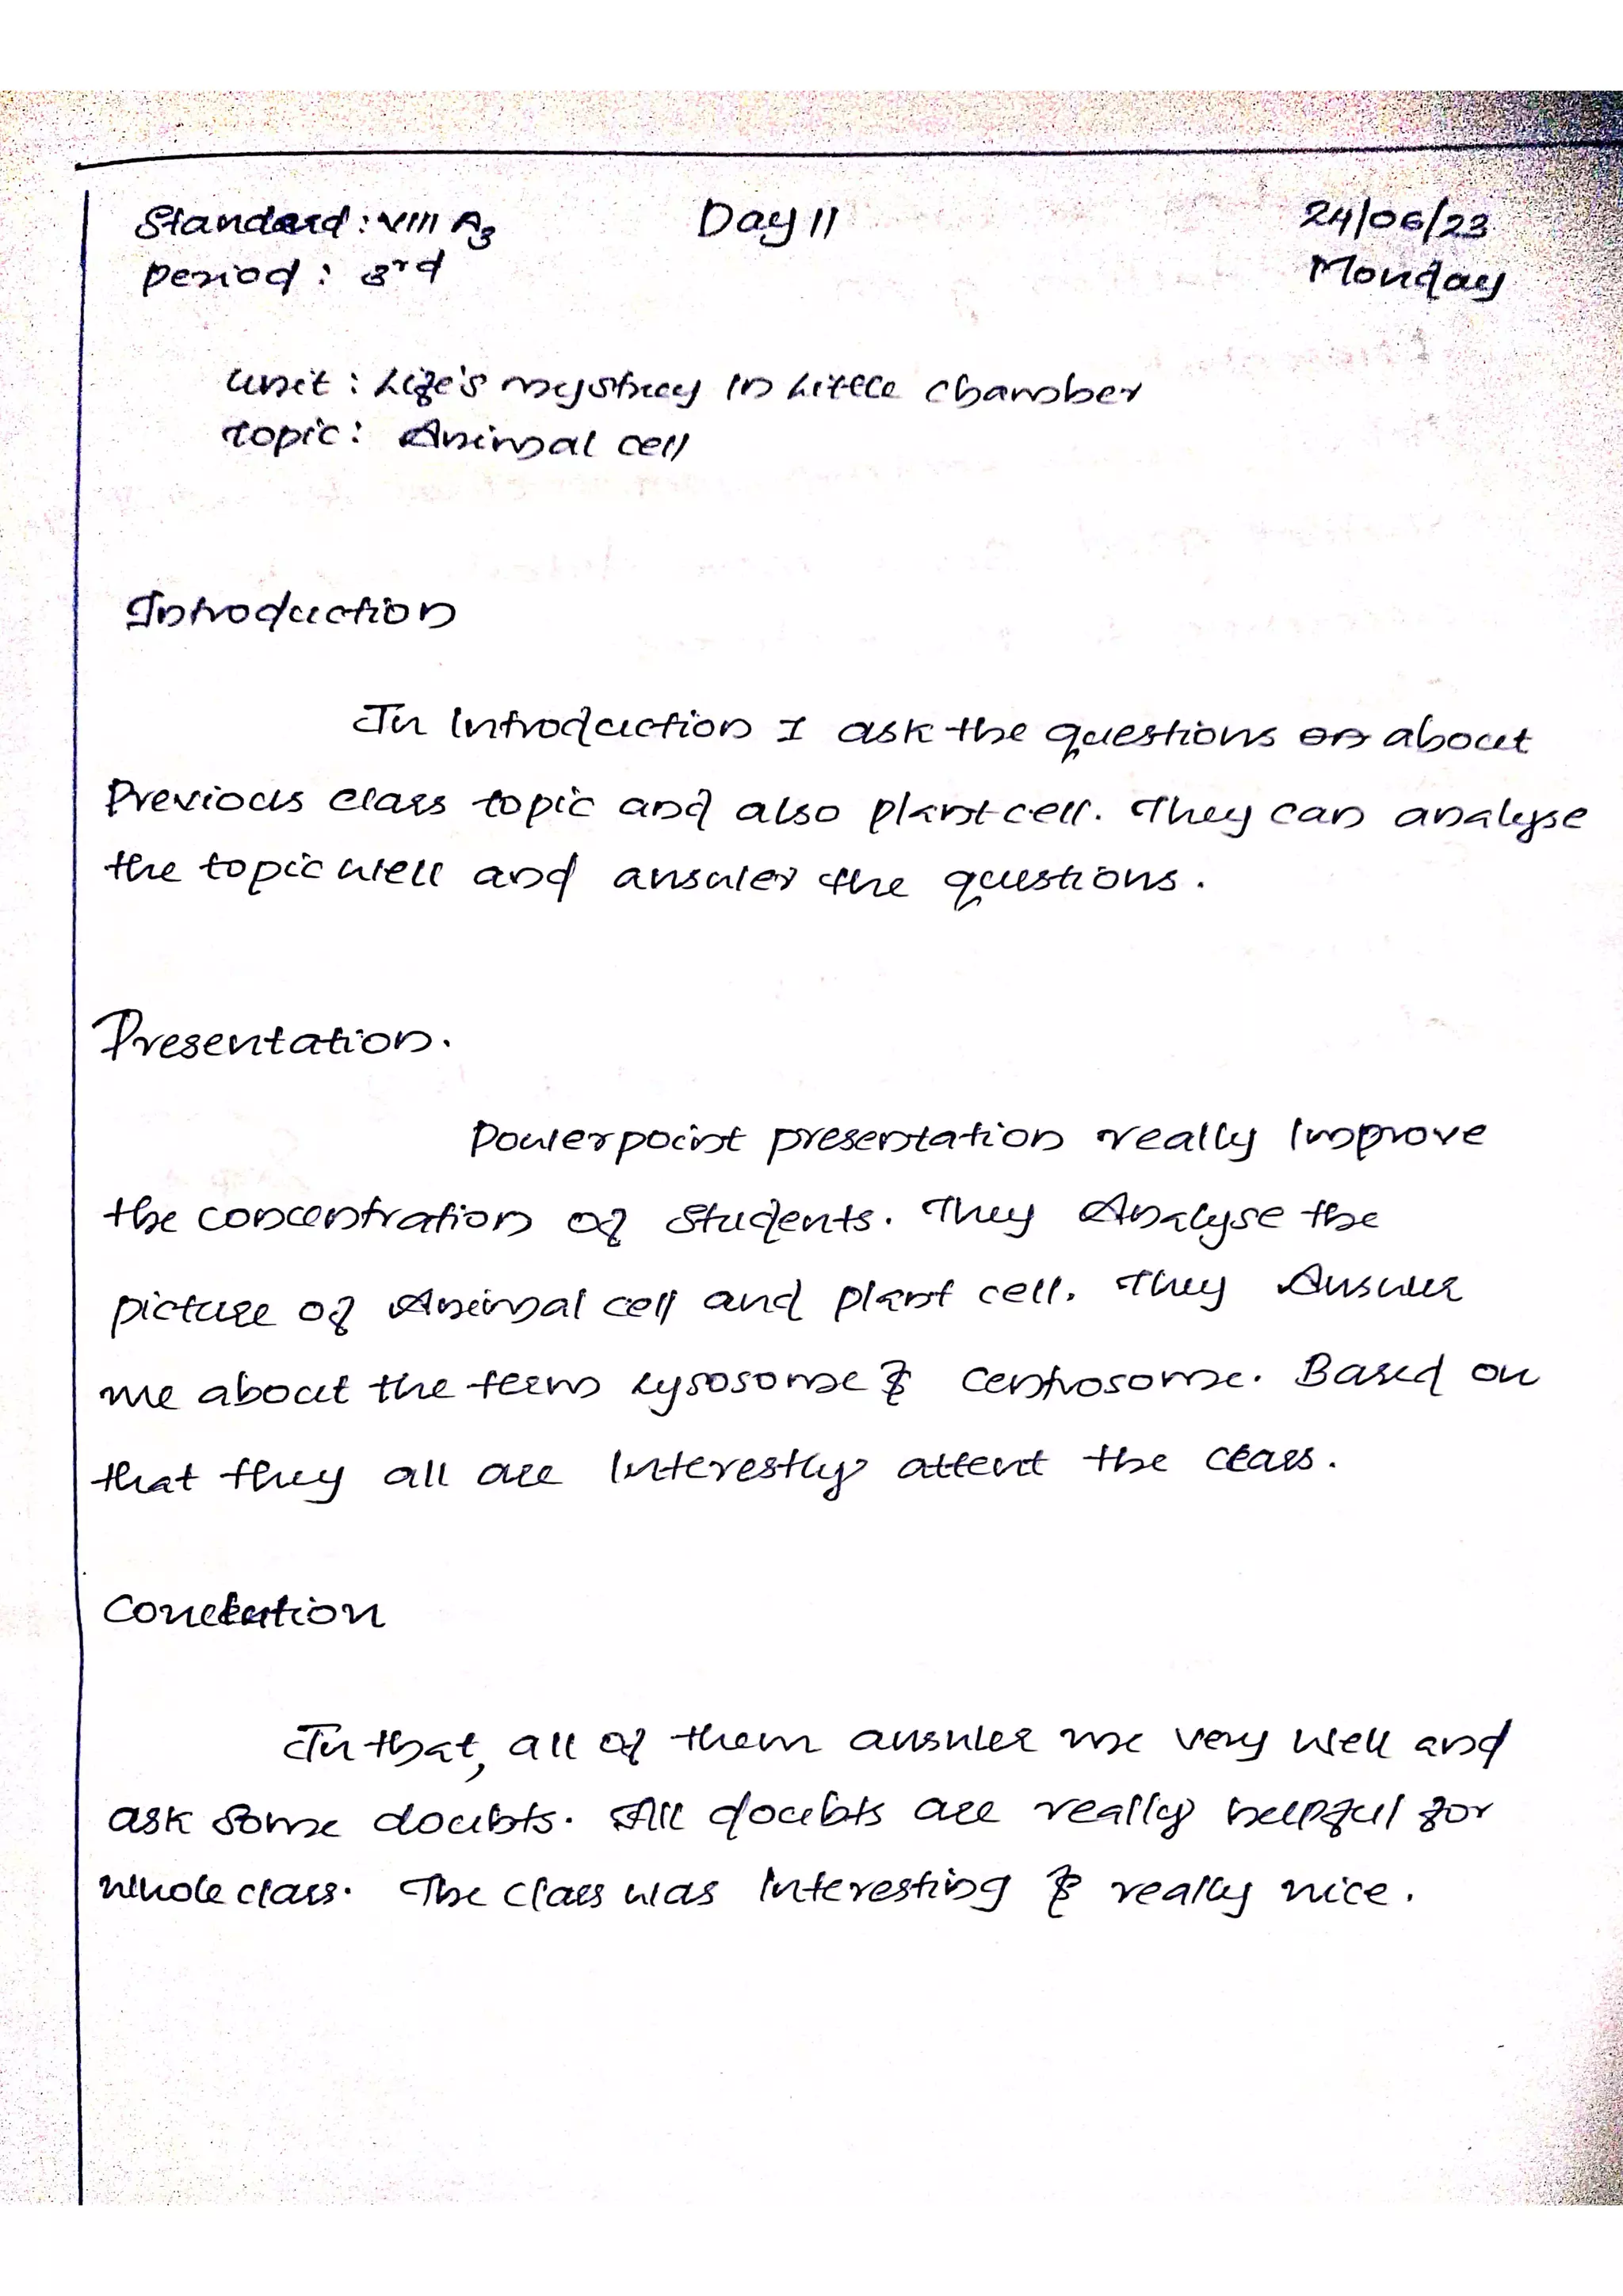 Standard : VIII A3 Day 11 24/06/23
Period : 3rd Monday
Unit : Life's mystrey In Little chamber
Topic : Animal cell
Introduction
In Introduction I ask the questions on about
Previous class topic and also plant cell. They can analyse
the topic well and answer the questions.
Presentation.
Powerpoint presentation really Improve
the concentration of Students. They Analyse the
picture of Animal cell and plant cell. They Answer
me about the term Lysosome & Centrosome. Based on
that they all are Interestly attent the class.
Conclution
In that, all of them answer me very well and
ask some doubts. All doubts are really helpful for
whole class. The class was Interesting & really nice.